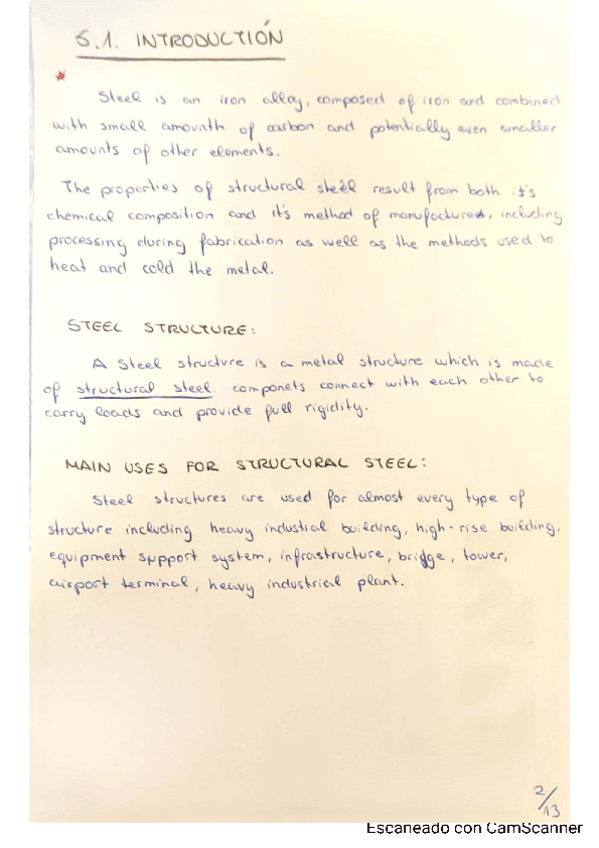 5.1. INTRODUCTIÓN
Steel is an iron alloy, composed of iron and combined
with small amounth of carbon and potentially even smaller
amounts of other elements.
The properties of structural steel result from both it's
chemical composition and it's method of manufactures, including
processing during fabrication as well as the methods used to
heat and cold the metal.
STEEL STRUCTURE:
A Steel structure is a metal structure which is made
of structural steel. componets connect with each other to
carry loads and provide full rigidity.
MAIN USES FOR STRUCTURAL STEEL:
Steel structures are used for almost every type of
structure including heavy industial building, high-rise building,
equipment support system, infrastructure, bridge, tower,
airport terminal, heavy industrial plant.
2/13
Escaneado con CamScanner